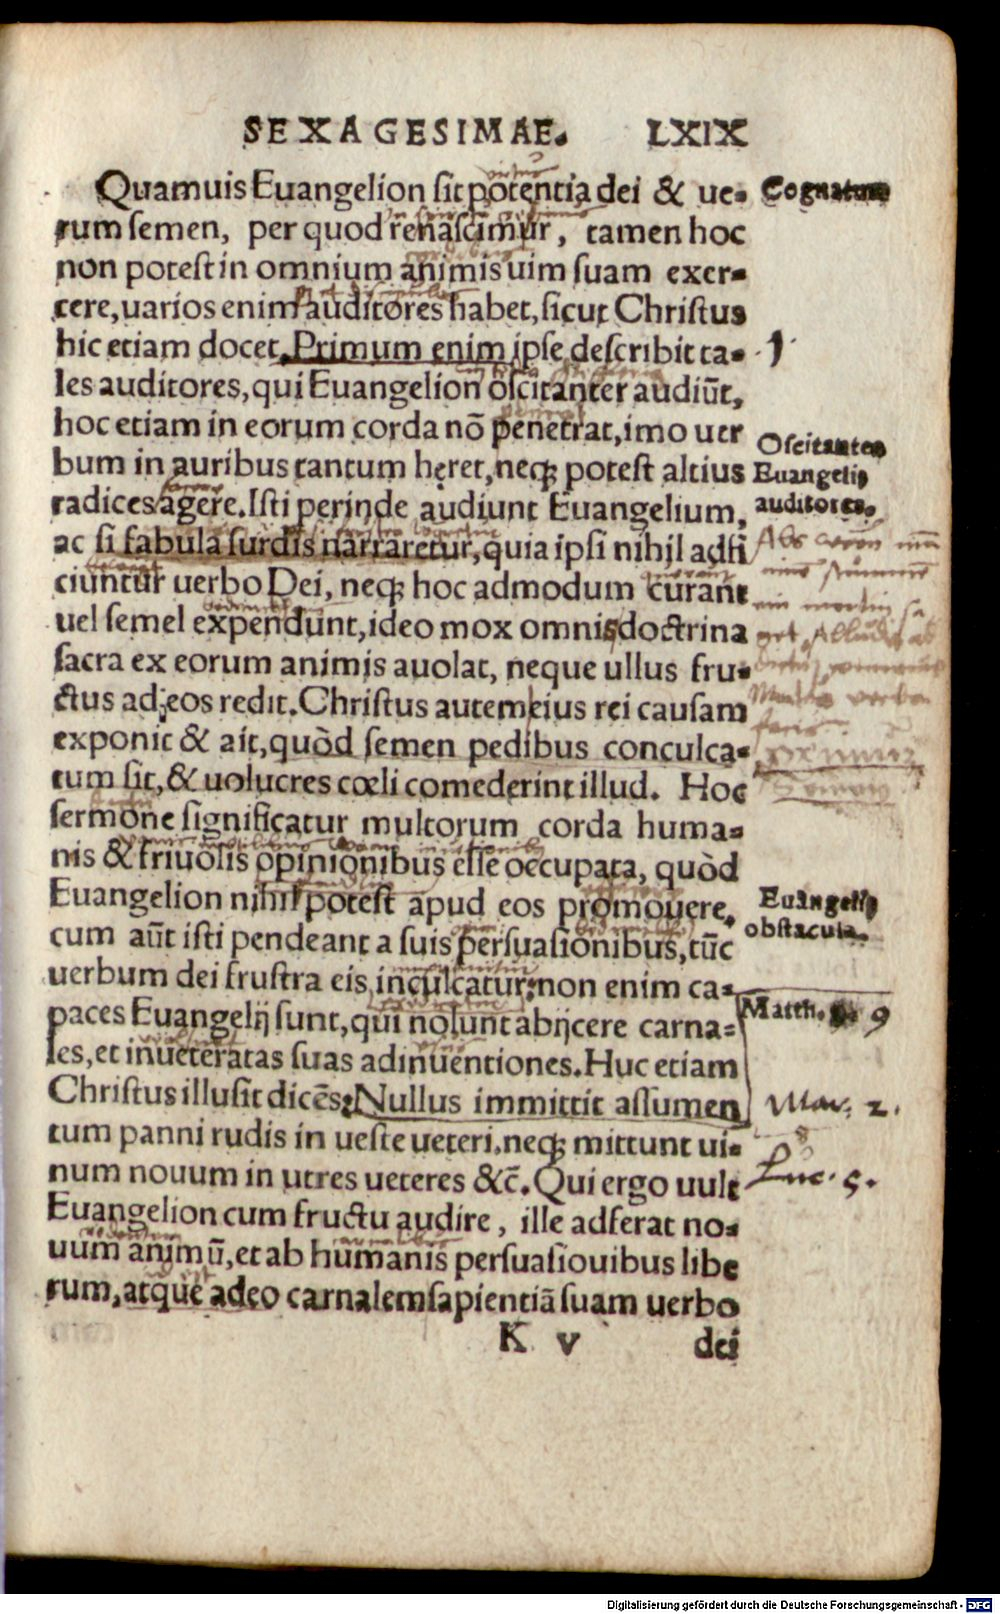 SEXAGESIMAE. LXIX
Quamuis Euangelion sit potentia dei & ue-
rum semen, per quod renascimur, tamen hoc
non potest in omnium animis uim suam exer-
cere, uarios enim auditores habet, sicut Christus
hic etiam docet. Primum enim ipse describit ta-
les auditores, qui Euangelion oscitanter audiūt,
hoc etiam in eorum corda nō penetrat, imo uer
bum in auribus tantum hęret, neqꝫ potest altius
radices agere. Isti perinde audiunt Euangelium,
ac si fabula surdis narraretur, quia ipsi nihil adfi
ciuntur uerbo Dei, neqꝫ hoc admodum curant
uel semel expendunt, ideo mox omnis doctrina
sacra ex eorum animis auolat, neque ullus fru-
ctus ad eos redit. Christus autem eius rei causam
exponit & ait, quòd semen pedibus conculca-
tum sit, & uolucres cœli comederint illud. Hoc
sermone significatur multorum corda huma-
nis & friuolis opinionibus esse occupata, quòd
Euangelion nihil potest apud eos promouere.
cum aūt isti pendeant a suis persuasionibus, tūc
uerbum dei frustra eis inculcatur: non enim ca-
paces Euangelij sunt, qui nolunt abijcere carna-
les, et inueteratas suas adinuentiones. Huc etiam
Christus illusit dicēs: Nullus immittit assumen
tum panni rudis in ueste ueteri. neqꝫ mittunt ui-
num nouum in utres ueteres &c̄. Qui ergo uult
Euangelion cum fructu audire, ille adferat no-
uum animū, et ab humanis persuasiouibus libe
rum, atque adeo carnalem sapientiā suam uerbo
K v dei
Cognatum
1
Oscitantes
Euangelij
auditores.
Euangelij
obstacula.
Matth. 9
Mar. 2.
Luc. 5.
Digitalisierung gefördert durch die Deutsche Forschungsgemeinschaft - DFG